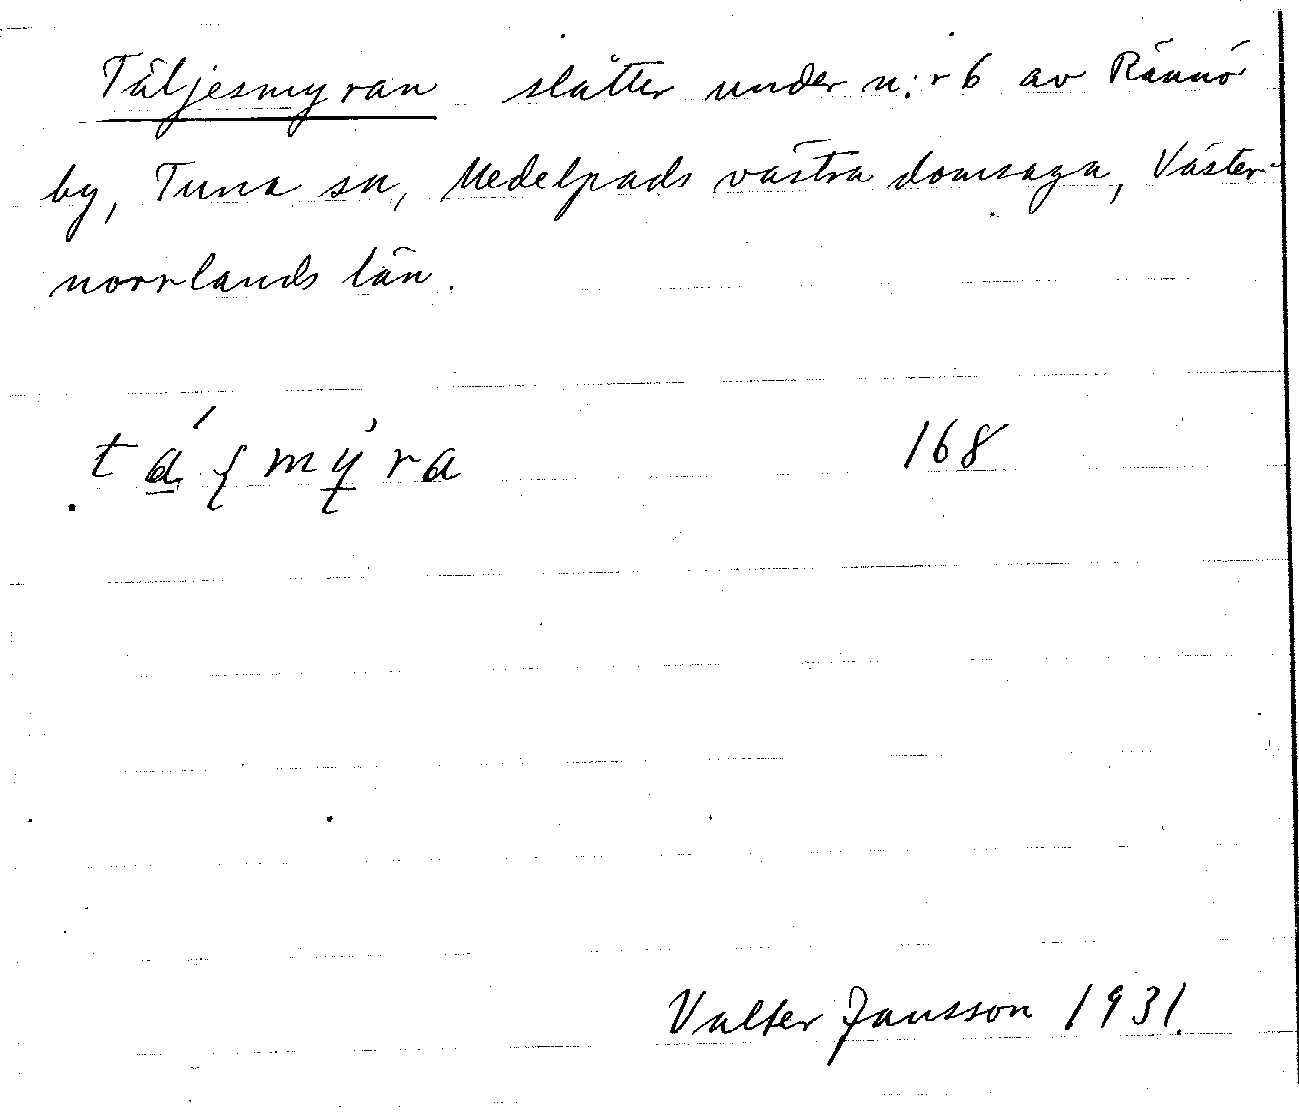 Täljesmyran slåtter under n:r 6 av Rännö
by, Tuna sn, Medelpads västra domsaga, Väster-
norrlands län.
168
Valter Jansson 1931.